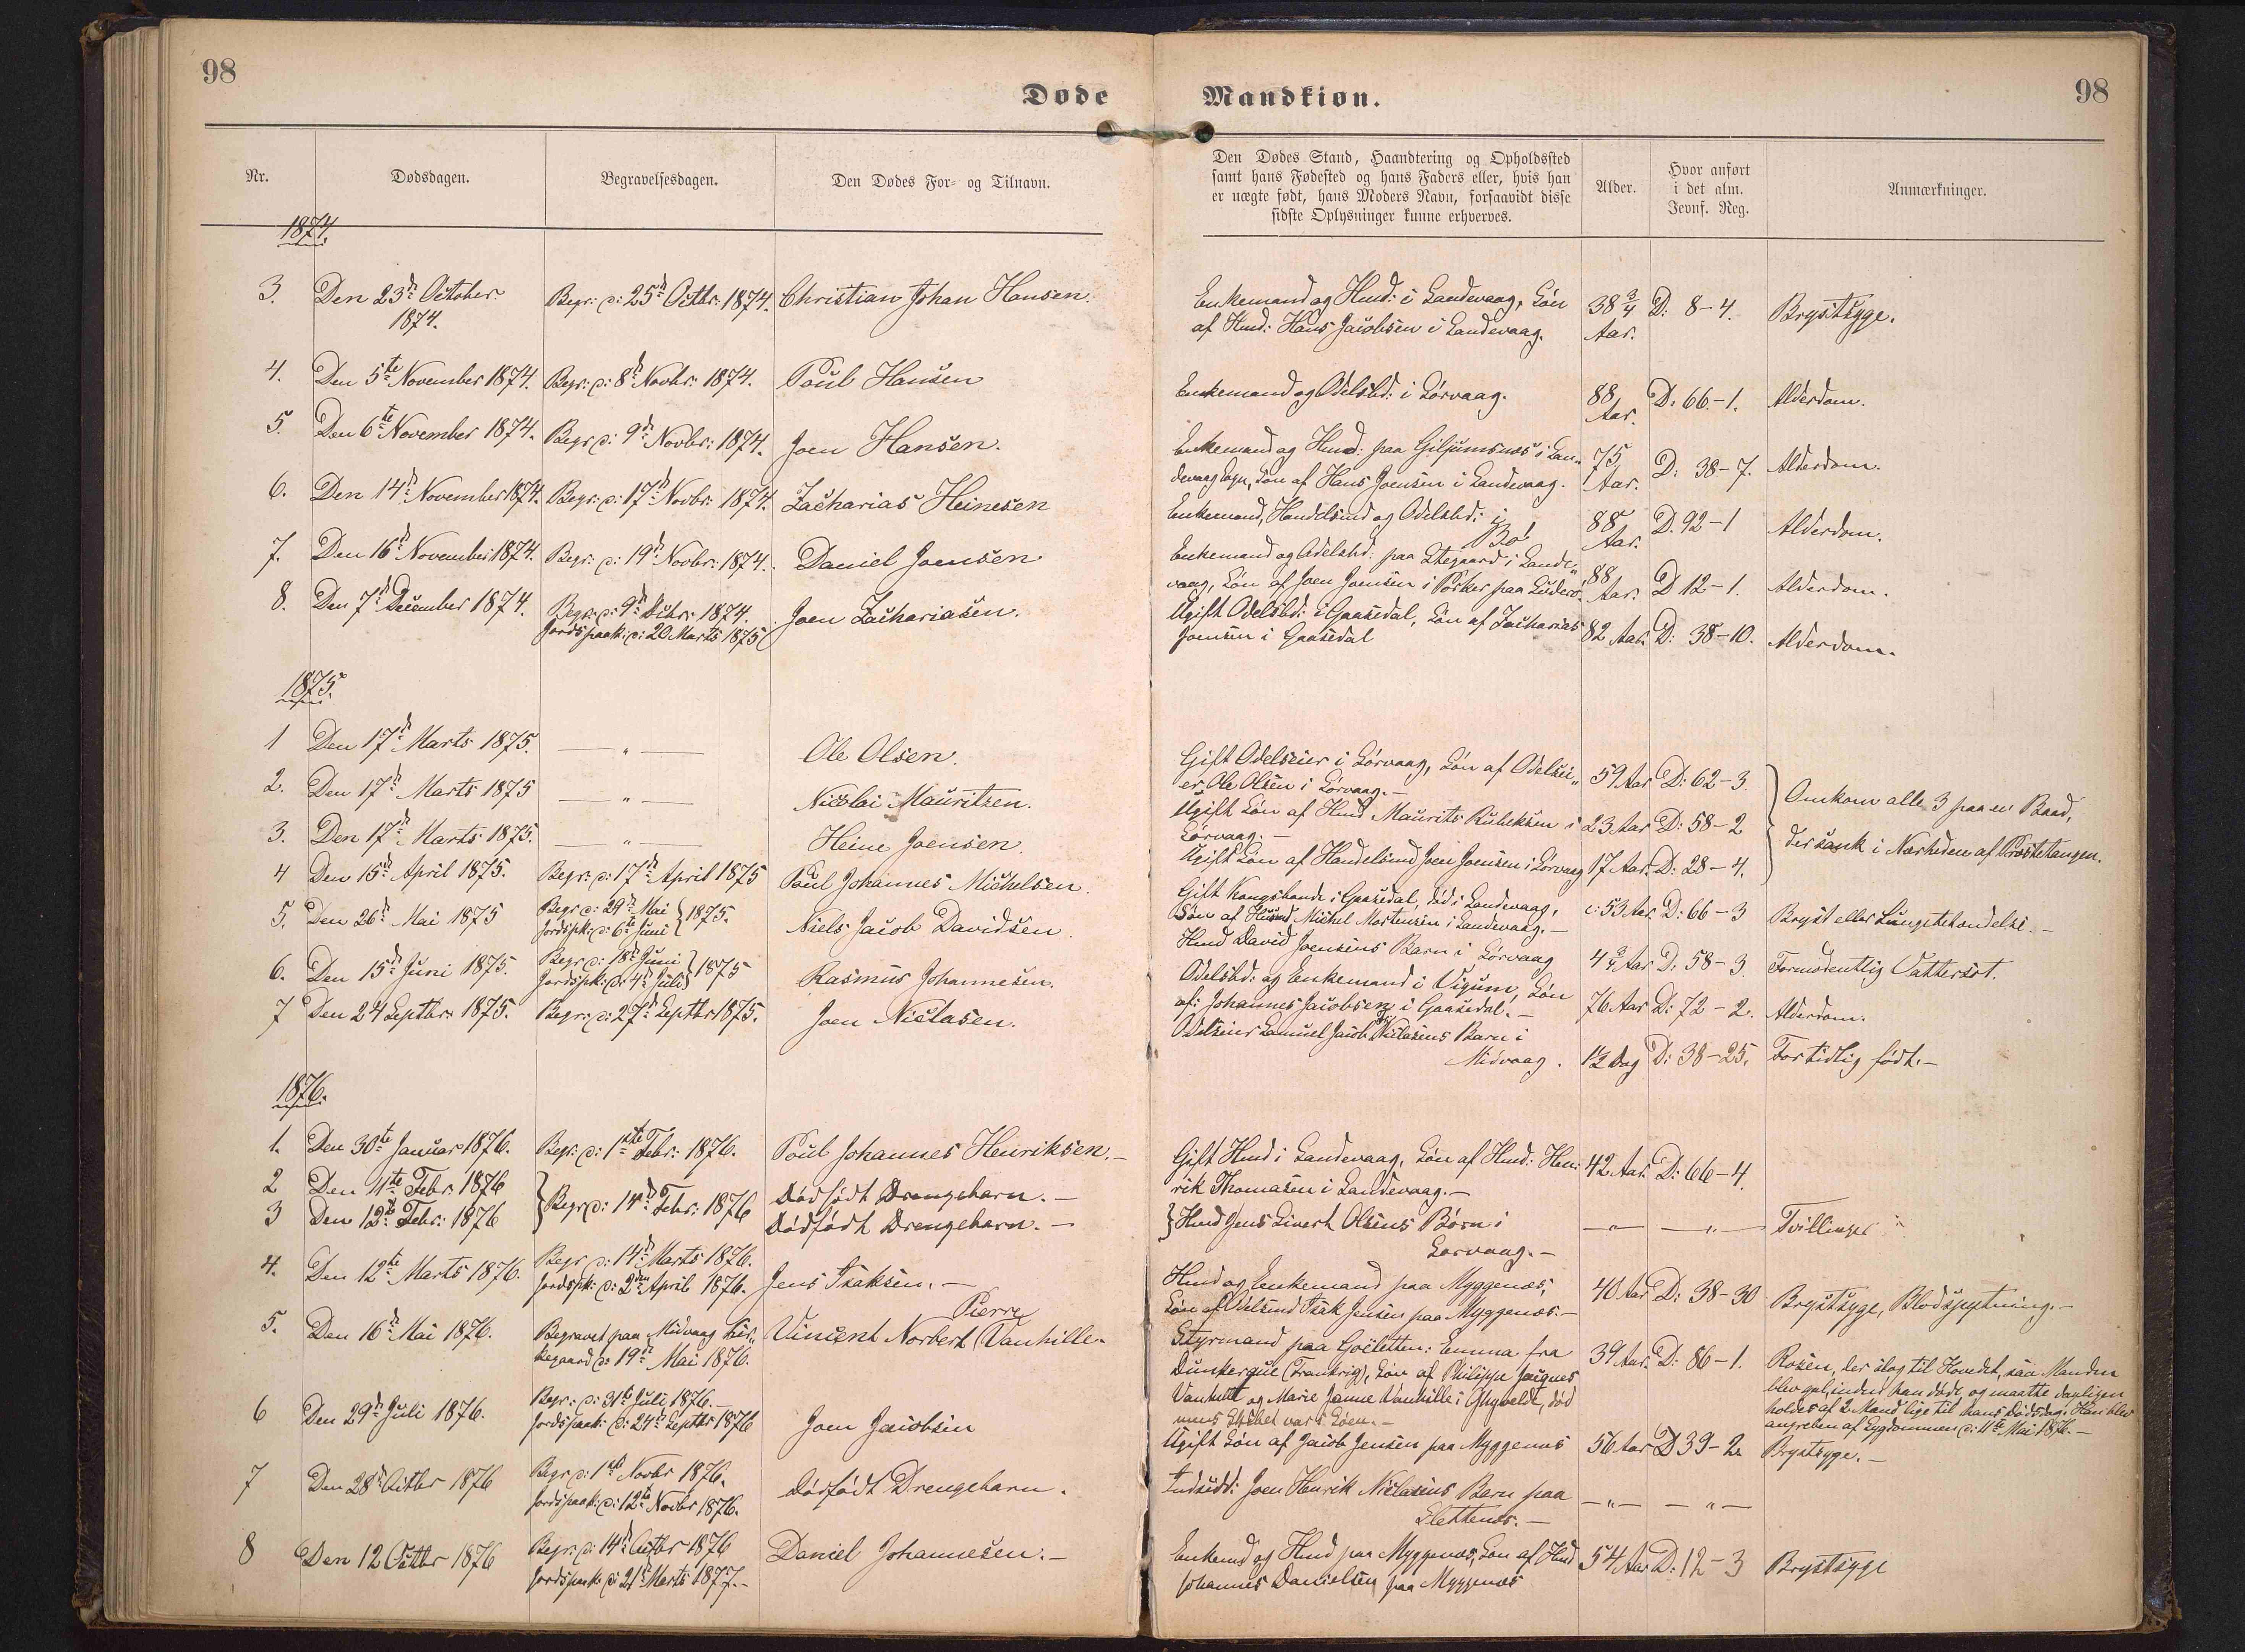 98
Døde
Nr.
Dødsdagen.
Begravelsesdagen.
Den Dødes For- og Tilnavn.
1874.
3. Den 23d October Begr: d: 25d Octbr. 1874. Christian Johan Hansen.
1874.
4. Den 5te November 1874. Begr: d: 8d Novbr: 1874. Poul Hansen
5. Den 6te November 1874. Begr d: 9d Novbr: 1874. Joen Hansen.
6. Den 14d November 1874. Begr: d: 17d Novbr: 1874. Zacharias Heinesen
7. Den 16d November 1874. Begr: d: 19d Novbr: 1874. Daniel Joensen
8. Den 7d December 1874. Begr: d: 9d Dcbr: 1874. Joen Zachariasen.
Jordspaak: d: 20 Marts 1875
1875.
1 Den 17d Marts 1875. — " — Ole Olsen.
2. Den 17d Marts 1875 — " — Nicolai Mauritzen.
3. Den 17d Marts 1875. — " — Heine Joensen.
4 Den 15d April 1875. Begr: d: 17d April 1875 Poul Johannes Michelsen.
5. Den 26d Mai 1875 Begr d: 29d Mai } 1875. Niels Jacob Davidsen.
Jordspk: d: 6te Juni
6. Den 15d Juni 1875. Begr d: 18d Juni } 1875 Rasmus Johannesen.
Jordspk: d: 4d Juli
7 Den 24 Septbr: 1875. Begr: d: 27d Septbr 1875. Joen Niclasen.
1876.
1. Den 30te Januar 1876. Begr: d: 1ste Febr: 1876. Poul Johannes Henriksen.—
2 Den 11te Febr: 1876 } Begr: d: 14d Febr: 1876 Dødfødt Drengebarn.—
3 Den 12te Febr: 1876 Dødfødt Drengebarn.—
4. Den 12te Marts 1876. Begr d: 14d Marts 1876. Jens Isaksen.—
Jordspk: d: 2den April 1876.
Pierre
5. Den 16d Mai 1876. Begravet paa Midvaag Kir- Vincent Norbert Vanhille.
kegaard d: 19d Mai 1876.
6 Den 29d Juli 1876. Begr: d: 31te Juli 1876.— Joen Jacobsen
Jordspaak: d: 24d Septbr 1876
7 Den 28d Octbr 1876 Begr d: 1ste Novbr 1876. Dødfødt Drengebarn.
Jordspaak: d: 12te Novbr 1876.
8 Den 12 Octbr 1876 Begr: d: 14d Octbr 1876 Daniel Johannesen.—
Jordspaak: d: 21d Marts 1877.—
98
Mandkiøn.
Den Dødes Stand, Haandtering og Opholdssted
samt hans Fødested og hans Faders eller, hvis han
er uægte født, hans Moders Navn, forsaavidt disse
sidste Oplysninger kunne erhverves.
Alder.
Hvor anført
i det alm.
Jevnf. Reg.
Anmærkninger.
Enkemand og Hmd: i Sandevaag, Søn 38 3/4 D: 8-4. Brystsyge.
af Hmd: Hans Jacobsen i Sandevaag. Aar.
Enkemand og Odelsbd: i Sørvaag. 88 Aar. D: 66-1. Alderdom.
Enkemand og Hmd: paa Giljumsnæs i San- 75 D: 38-7. Alderdom.
devaag Sogn, Søn af Hans Joensen i Sandevaag. Aar.
Enkemand, Handelsmd og Odelsbd: i 88 D. 92-1 Alderdom.
Bø Aar.
Enkemand og Odelsbd: paa Stegaard i Sande- 88
vaag, Søn af Joen Joensen i Porkere paa Suderø. Aar. D 12-1. Alderdom.
Ugift Odelsbd: i Gaasedal, Søn af Zacharias 82 Aar. D: 38-10. Alderdom.
Joensen i Gaasedal
Gift Odelseier i Sørvaag, Søn af Odelsei- 59 Aar D: 62-3
er Ole Olsen i Sørvaag.—
Omkom alle 3 paa en Baad,
Ugift Søn af Hmd Maurits Rubeksen i 23 Aar D: 58-2
Sørvaag.—
der sank i Nærheden af Præstetangen.
Ugift Søn af Handelsmd Joen Joensen i Sørvaag 17 Aar. D: 28-4.
Gift Kongsbonde i Gaasedal, død i Sandevaag, c: 53 Aar. D: 66-3 Bryst eller Lungebetændelse.—
Søn af Huusmd Michel Mortensen i Sandevaag.—
Hmd David Joensens Barn i Sørvaag 4 3/4 Aar D: 58-3. Formodentlig Vattersot.
Odelsbd: og Enkemand i Vigum, Søn
af: Johannes Jacobsen i Gaasedal.— 76 Aar D: 72-2. Alderdom.
Odelseier Samuel Jacob Niclasens Barn i
Midvaag. 1/2 Dag D: 38-25. For tidlig født.—
Gift Hmd i Sandevaag, Søn af Hmd: Hen- 42 Aar. D: 66-4.
rik Thomasen i Sandevaag.—
} Hmd Jens Sivert Olsens Børn i — " — — " — Tvillinger
Sørvaag.—
Hmd og Enkemand paa Myggenæs, 40 Aar D: 38-30 Brystsyge, Blodspytning.—
Søn af Odelsmd Isak Jensen paa Myggenæs.—
Styrmand paa Goëletten: Emma fra 39 Aar. D: 86-1. Rosen, der slog til Hovedet, saa Manden
Dunkerque (Frankrig), Søn af Philippe Jacques blev gal, inden han døde, og maatte dagligen
Vanhille og Marie Jeanne Vanhille i Ghyvelde, død holdes af 2 Mand lige til hans Dødsdag. Han blev
mens Skibet var i Søen.— angreben af Sygdommen d: 11te Mai 1876.—
Ugift Søn af Jacob Jensen paa Myggenæs 56 Aar D 39-2. Brystsyge.—
Indsidd: Joen Henrik Niclasens Barn paa — " — — " —
Slettenæs.—
Enkemd og Hmd paa Myggenæs, Søn af Hmd 54 Aar D: 12-3 Brystsyge
Johannes Danielsen paa Myggenæs